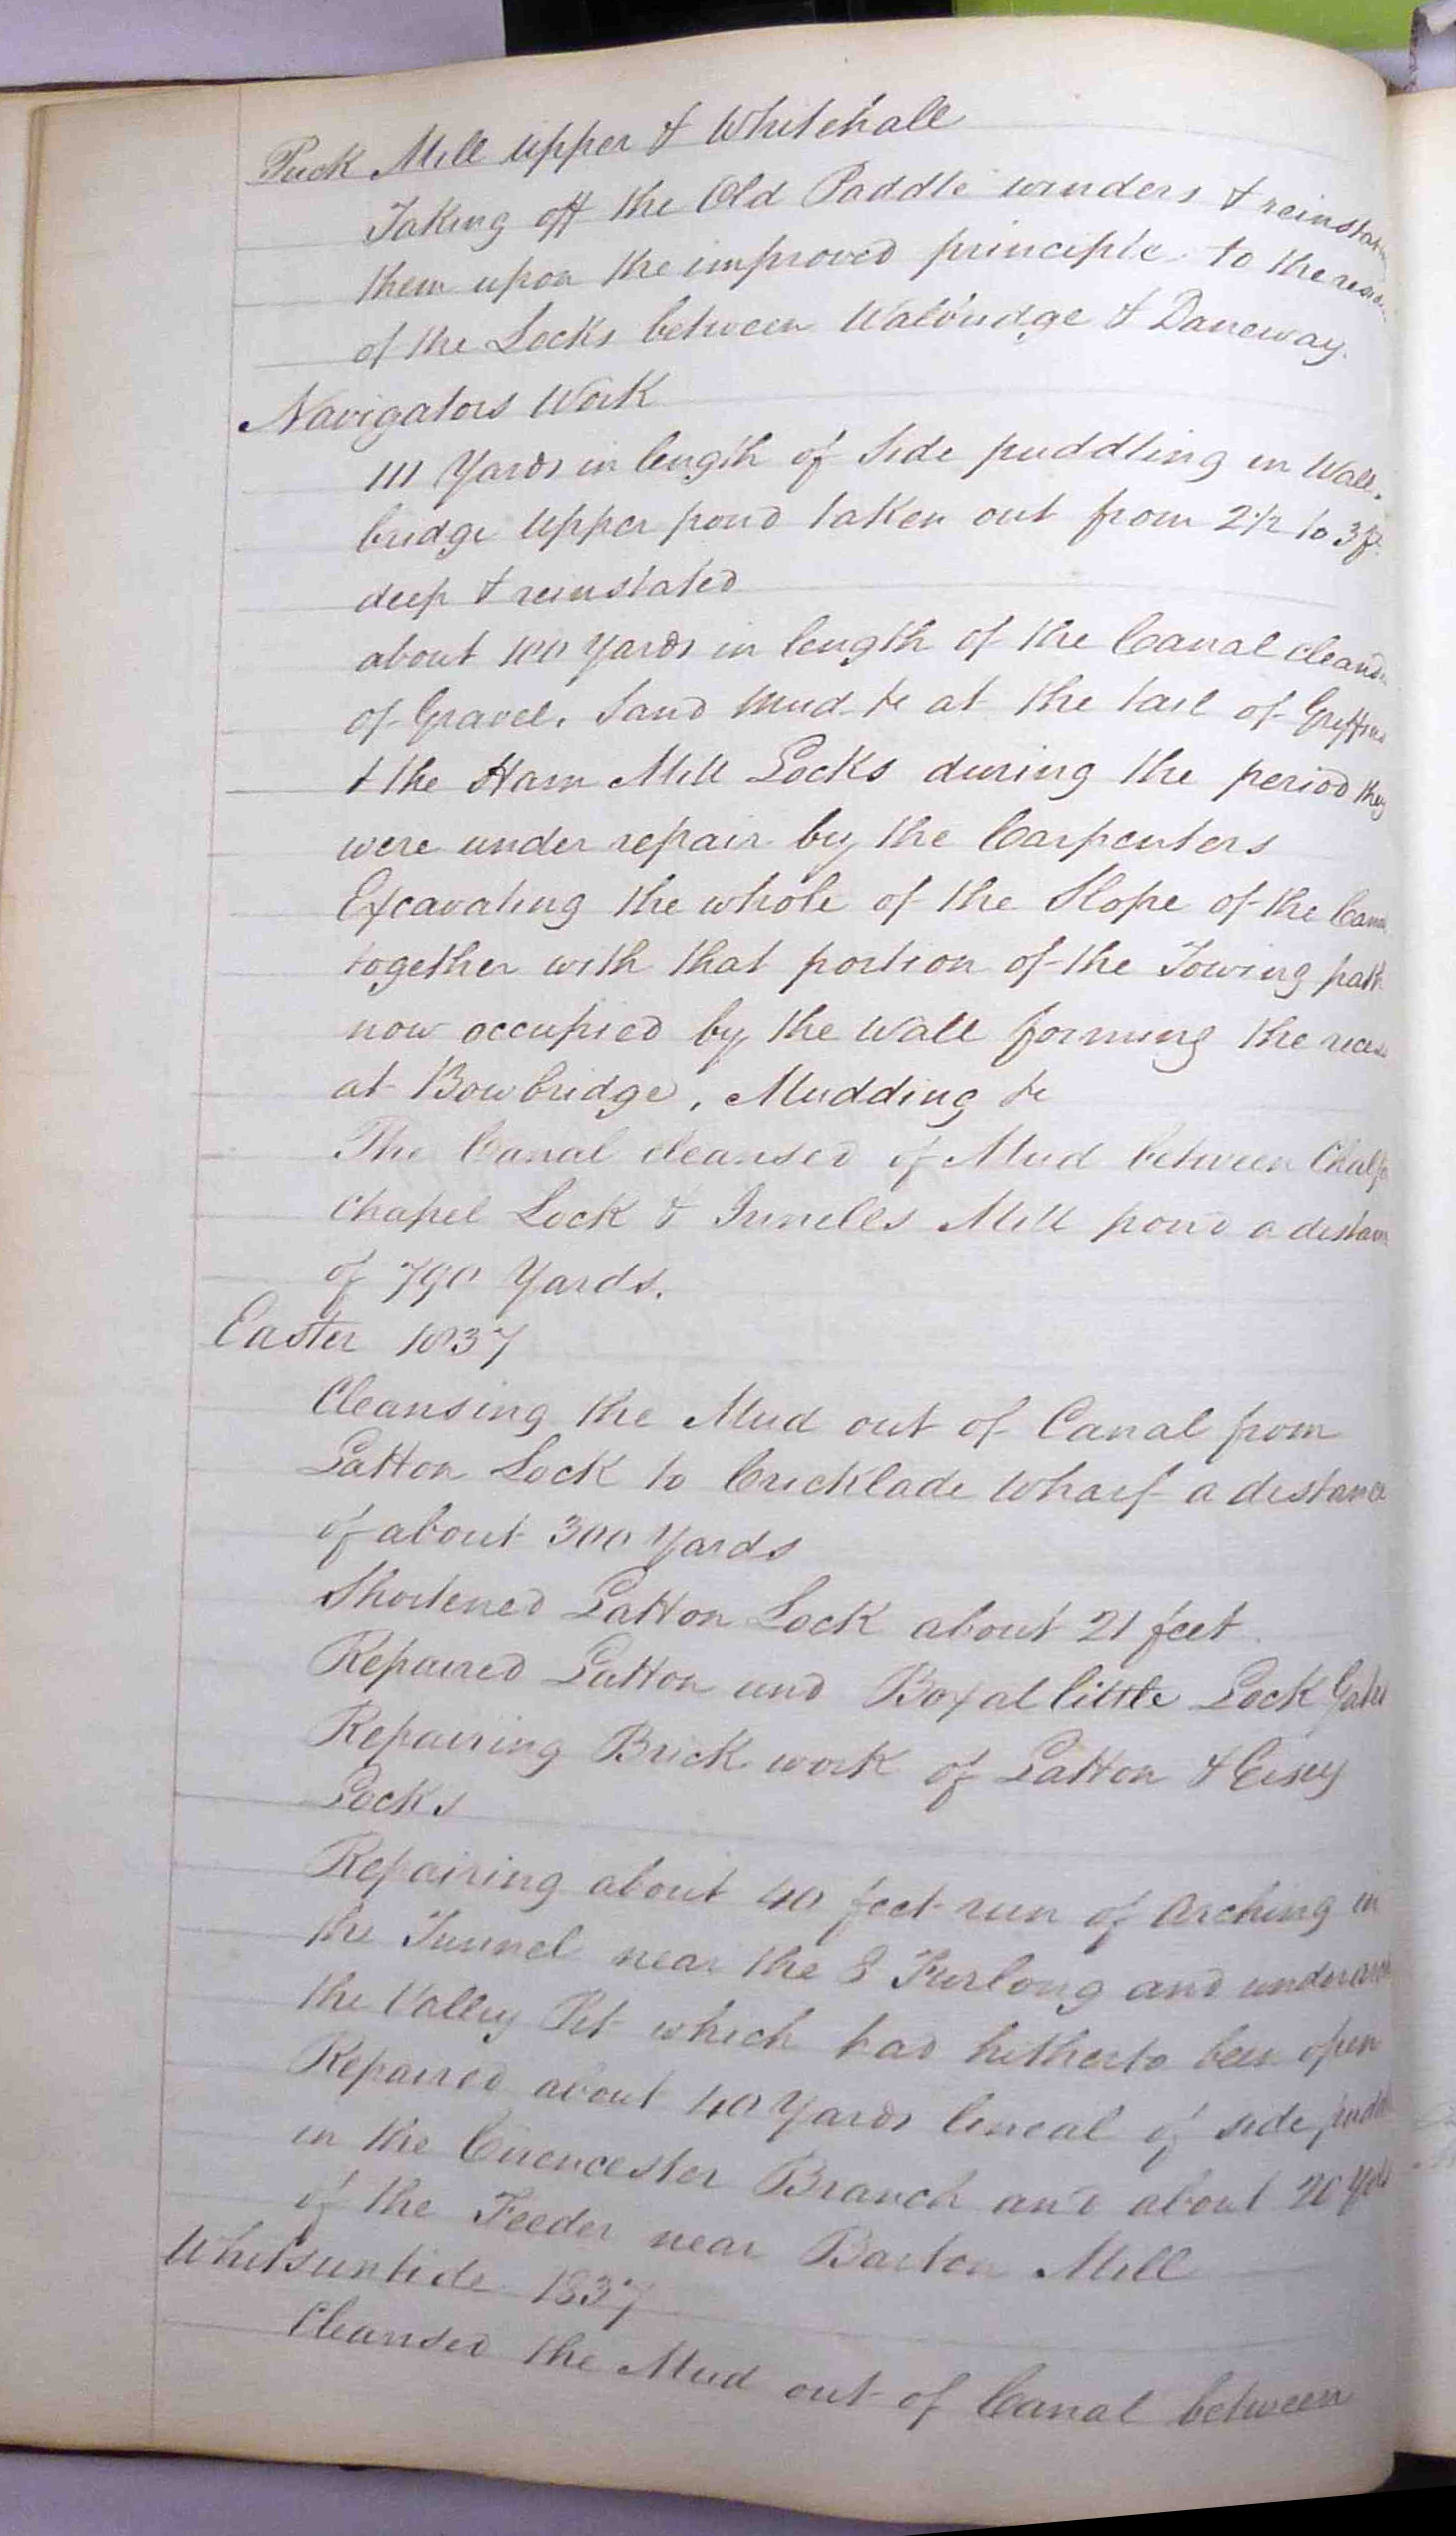 Puck Mill upper & Whitehall
Taking off the Old Paddle winders & reinstat
them upon the improved principle to the resi
of the Locks between Walbridge & Daneway.
Navigators Work
111 Yards in length of Side puddling in Wall-
bridge Upper pond taken out from 2 1/2 to 3 ft
deep & reinstated
about 100 Yards in length of the Canal cleans
of Gravel, Sand Mud &c at the tail of Griffins
& the Ham Mill Locks during the period they
were under repair by the Carpenters
Excavating the whole of the Slope of the Cana
together with that portion of the Towing path
now occupied by the Wall forming the recess
at Bowbridge, Mudding &c
The Canal cleansed of Mud between Chalfo
Chapel Lock & Innells Mill pond a distance
of 790 Yards.
Easter 1837
Cleansing the Mud out of Canal from
Latton Lock to Cricklade Wharf a distance
of about 300 Yards
Shortened Latton Lock about 21 feet
Repaired Latton and Boxal little Lock Gates
Repairing Brick work of Latton & Eisey
Locks
Repairing about 40 feet run of Arching in
the Tunnel near the 8 Furlong and underarch
the Valley Pit which had hitherto been open
Repaired about 40 Yards lineal of side puddl
in the Cirencester Branch and about 20 Yds
of the Feeder near Barton Mill
Whitsuntide 1837
Cleansed the Mud out of Canal between